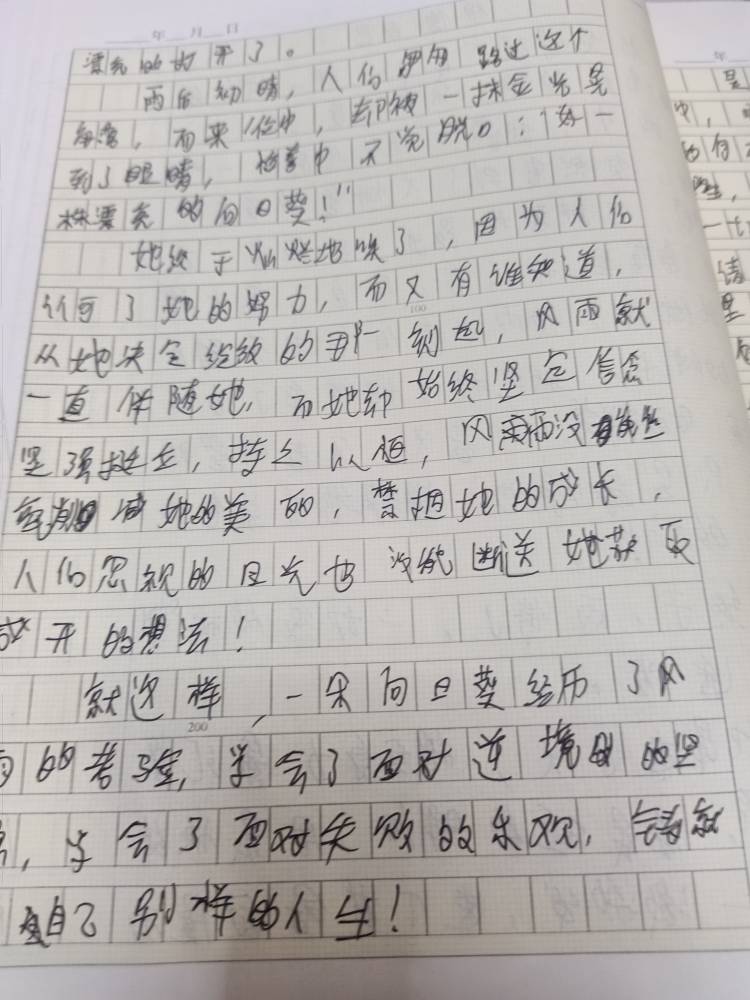 年 月 日
漂亮的的开了。
雨后初晴，人们 路过这个
角落，而来 ，却被一抹金光晃
到了眼睛， 中不觉脱口：“好一
株漂亮的向日葵！”
她终于灿烂地笑了，因为人们
许可了她的努力，而又有谁知道，
从她决定绽放的那一刻起，风雨就
一直伴随她，而她却始终坚定信念
坚强挺立，持之以恒，风雨没能丝
毫削减她的美丽，禁锢她的成长，
100
人们忽视的目光也没能断送她获取
盛开的想法！
就这样，一朵向日葵经历了风
200
雨的考验，学会了面对逆境时的坚
，学会了面对失败的乐观，铸就
自己别样的人生！
年